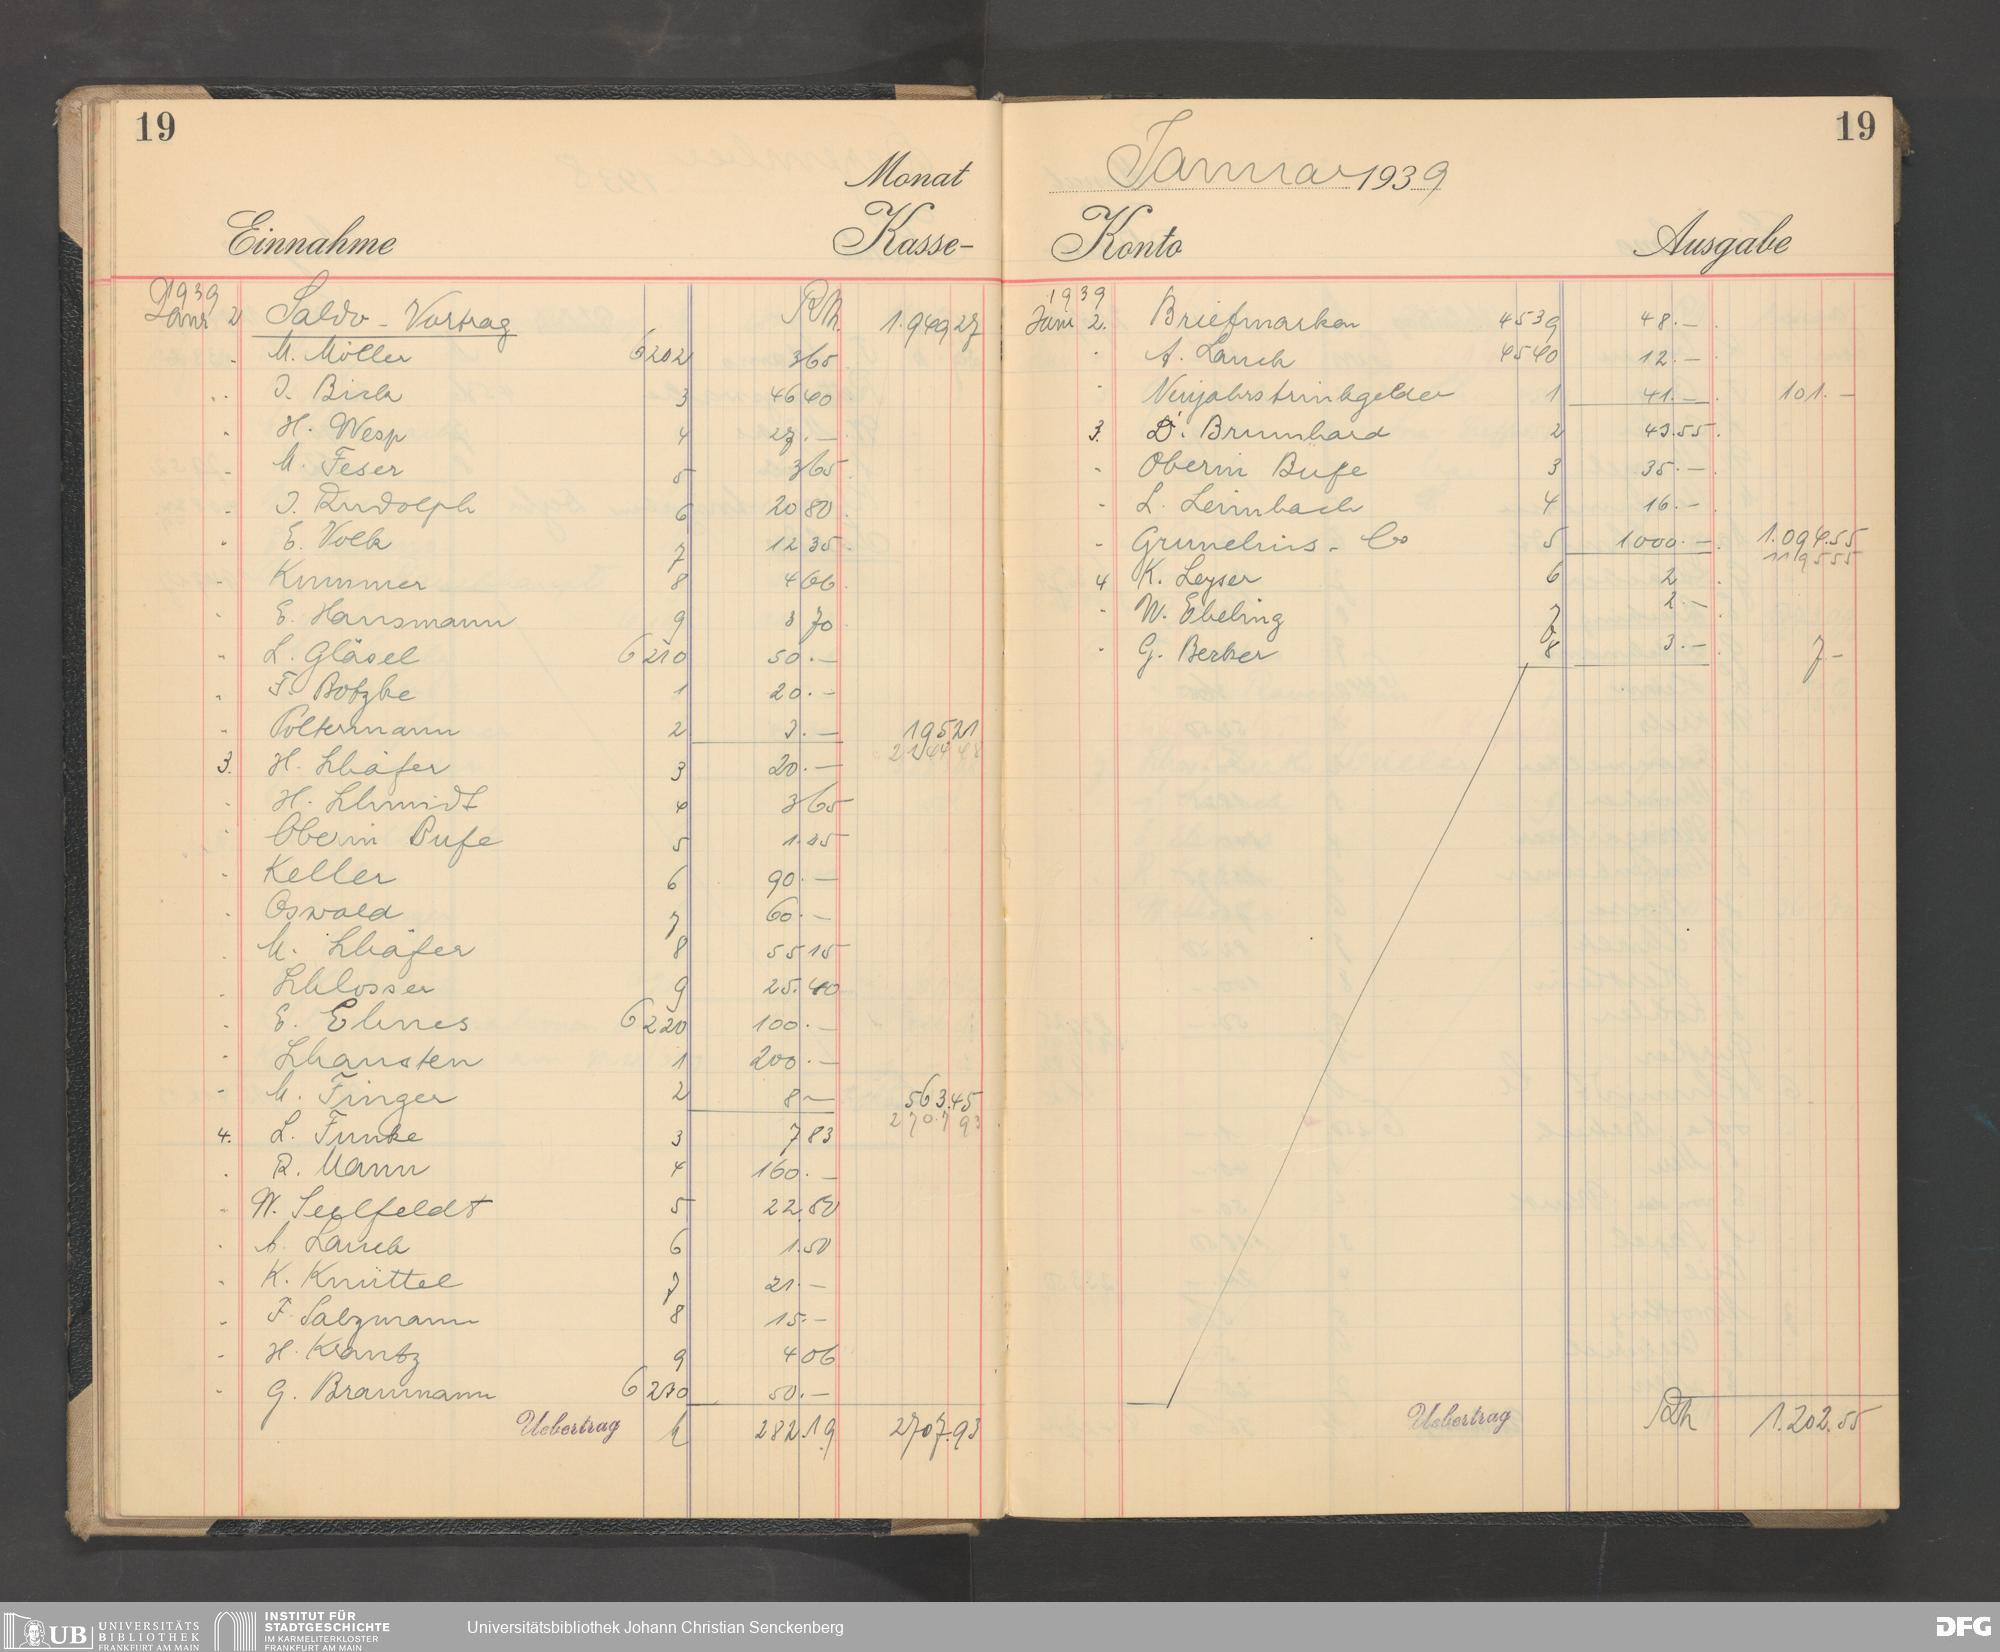 19
Monat
Einnahme Kasse-
1939
Janr 2 Saldo-Vortrag RM 1.949 27
" M. Möller 6202 3 65
" J. Birk 3 46 40
" H. Wesp 4 27.—
" M. Feser 5 3 65
" J. Rudolph 6 20 80
" E. Volk 7 12 35
" Kummer 8 4 66
" E. Hansmann 9 3 70
" L. Gläsel 6210 50.—
" F. Botzke 1 20.—
" Poltermann 2 3.— 195 21
2144 48
3. H. Schäfer 3 20.—
" H. Schmidt 4 3 65
" Oberin Bufe 5 1.25
" Keller 6 90.—
" Oswald 7 60.—
" M. Schäfer 8 55 15
" Schlosser 9 25.40
" E. Ehmes 6220 100.—
" Schansten 1 200.—
" M. Finger 2 8— 563.45
270793
4. L. Funke 3 7 83
" R. Mann 4 160.—
" W. Seelfeldt 5 22.80
" A. Lauch 6 1.50
" K. Knüttel 7 21.—
" F. Salzmann 8 15.—
" H. Krantz 9 4 06
" G. Braumann 6230 50.—
Uebertrag 282.19 2707.93
19
Januar 1939
Konto Ausgabe
1939
Janr 2. Briefmarken 4539 48.—
" A. Lauch 4540 12.—
" Neujahrstrinkgelder 1 41.— 101.—
3. D. Brumhard 2 43.55
" Oberin Bufe 3 35.—
" L. Leimbach 4 16.—
" Grunelius - Co 5 1000.— 1.094.55
119555
4 K. Leyser 6 2
" W. Ebeling 7 2.—
" G. Berker 8 3.— 7.—
Uebertrag RM 1.202.55
UB UNIVERSITÄTS
BIBLIOTHEK
FRANKFURT AM MAIN
INSTITUT FÜR
STADTGESCHICHTE
IM KARMELITERKLOSTER
FRANKFURT AM MAIN
Universitätsbibliothek Johann Christian Senckenberg
DFG